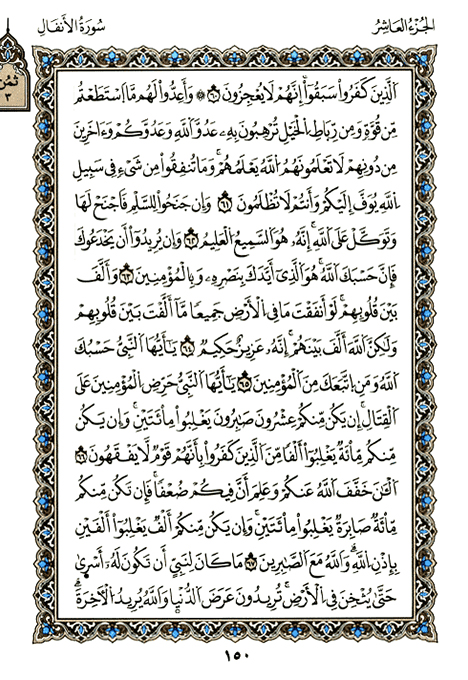 الجُزْءُ العَاشِرُ
سُورَةُ الأَنفَالِ
ثمن
٣
اَلذِينَ كَفَرُواْ سَبَقُوٓاْ إِنَّهُمْ لَا يُعْجِزُونَ ٦٠ ۞ وَأَعِدُّواْ لَهُم مَّا اَسْتَطَعْتُم
مِّن قُوَّةٍ وَمِن رِّبَاطِ اِلْخَيْلِ تُرْهِبُونَ بِهِۦ عَدُوَّ اَللَّهِ وَعَدُوَّكُمْ وَءَاخَرِينَ
مِن دُونِهِمْ لَا تَعْلَمُونَهُمُ اُللَّهُ يَعْلَمُهُمْ وَمَا تُنفِقُواْ مِن شَےْءٍ فِے سَبِيلِ
اِللَّهِ يُوَفَّ إِلَيْكُمْ وَأَنتُمْ لَا تُظْلَمُونَ ٦١ وَإِن جَنَحُواْ لِلسَّلْمِ فَاجْنَحْ لَهَا
وَتَوَكَّلْ عَلَى اَللَّهِ إِنَّهُۥ هُوَ اَلسَّمِيعُ اُلْعَلِيمُ ٦٢ وَإِنْ يُّرِيدُوٓاْ أَنْ يَّخْدَعُوكَ
فَإِنَّ حَسْبَكَ اَللَّهُ هُوَ اَلذِےٓ أَيَّدَكَ بِنَصْرِهِۦ وَبِالْمُؤْمِنِينَ ٦٣ وَأَلَّفَ
بَيْنَ قُلُوبِهِمْ لَوْ أَنفَقْتَ مَا فِے اِلْأَرْضِ جَمِيعًا مَّآ أَلَّفْتَ بَيْنَ قُلُوبِهِمْ
وَلَٰكِنَّ اَللَّهَ أَلَّفَ بَيْنَهُمْ إِنَّهُۥ عَزِيزٌ حَكِيمٌ ٦٤ يَٰٓأَيُّهَا اَلنَّبِےٓءُ حَسْبُكَ
اَللَّهُ وَمَنِ اِتَّبَعَكَ مِنَ اَلْمُؤْمِنِينَ ٦٥ يَٰٓأَيُّهَا اَلنَّبِےٓءُ حَرِّضِ اِلْمُؤْمِنِينَ عَلَى
اَلْقِتَالِ إِنْ يَّكُن مِّنكُمْ عِشْرُونَ صَٰبِرُونَ يَغْلِبُواْ مِاْئَتَيْنِ وَإِن تَكُن
مِّنكُم مِّاْئَةٌ يَغْلِبُوٓاْ أَلْفًا مِّنَ اَلذِينَ كَفَرُواْ بِأَنَّهُمْ قَوْمٌ لَّا يَفْقَهُونَ ٦٦
اَلَٰنَ خَفَّفَ اَللَّهُ عَنكُمْ وَعَلِمَ أَنَّ فِيكُمْ ضُعْفًا فَإِن تَكُن مِّنكُم
مِّاْئَةٌ صَابِرَةٌ يَغْلِبُواْ مِاْئَتَيْنِ وَإِنْ يَّكُن مِّنكُمْ أَلْفٌ يَغْلِبُوٓاْ أَلْفَيْنِ
بِإِذْنِ اِللَّهِ وَاللَّهُ مَعَ اَلصَّٰبِرِينَ ٦٧ مَا كَانَ لِنَبِےٓءٍ اَن يَكُونَ لَهُۥٓ أَسْرَىٰ
حَتَّىٰ يُثْخِنَ فِے اِلْأَرْضِ تُرِيدُونَ عَرَضَ اَلدُّنْيَا وَاللَّهُ يُرِيدُ اُلْأَخِرَةَ
١٥٠